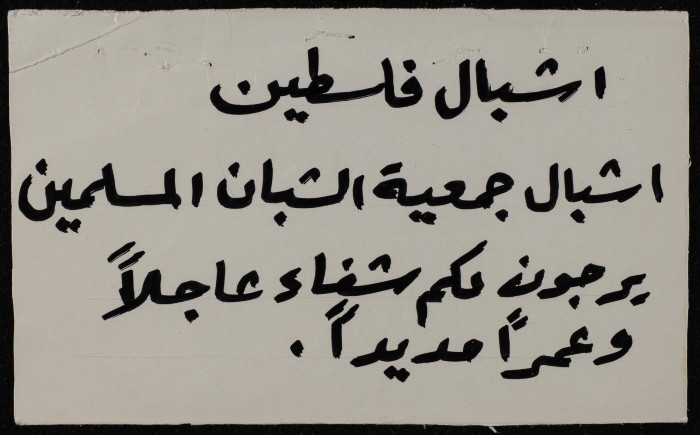 اشبال فلسطين
اشبال جمعية الشبان المسلمين
يرجون لكم شفاء عاجلاً
وعمراً مديداً .